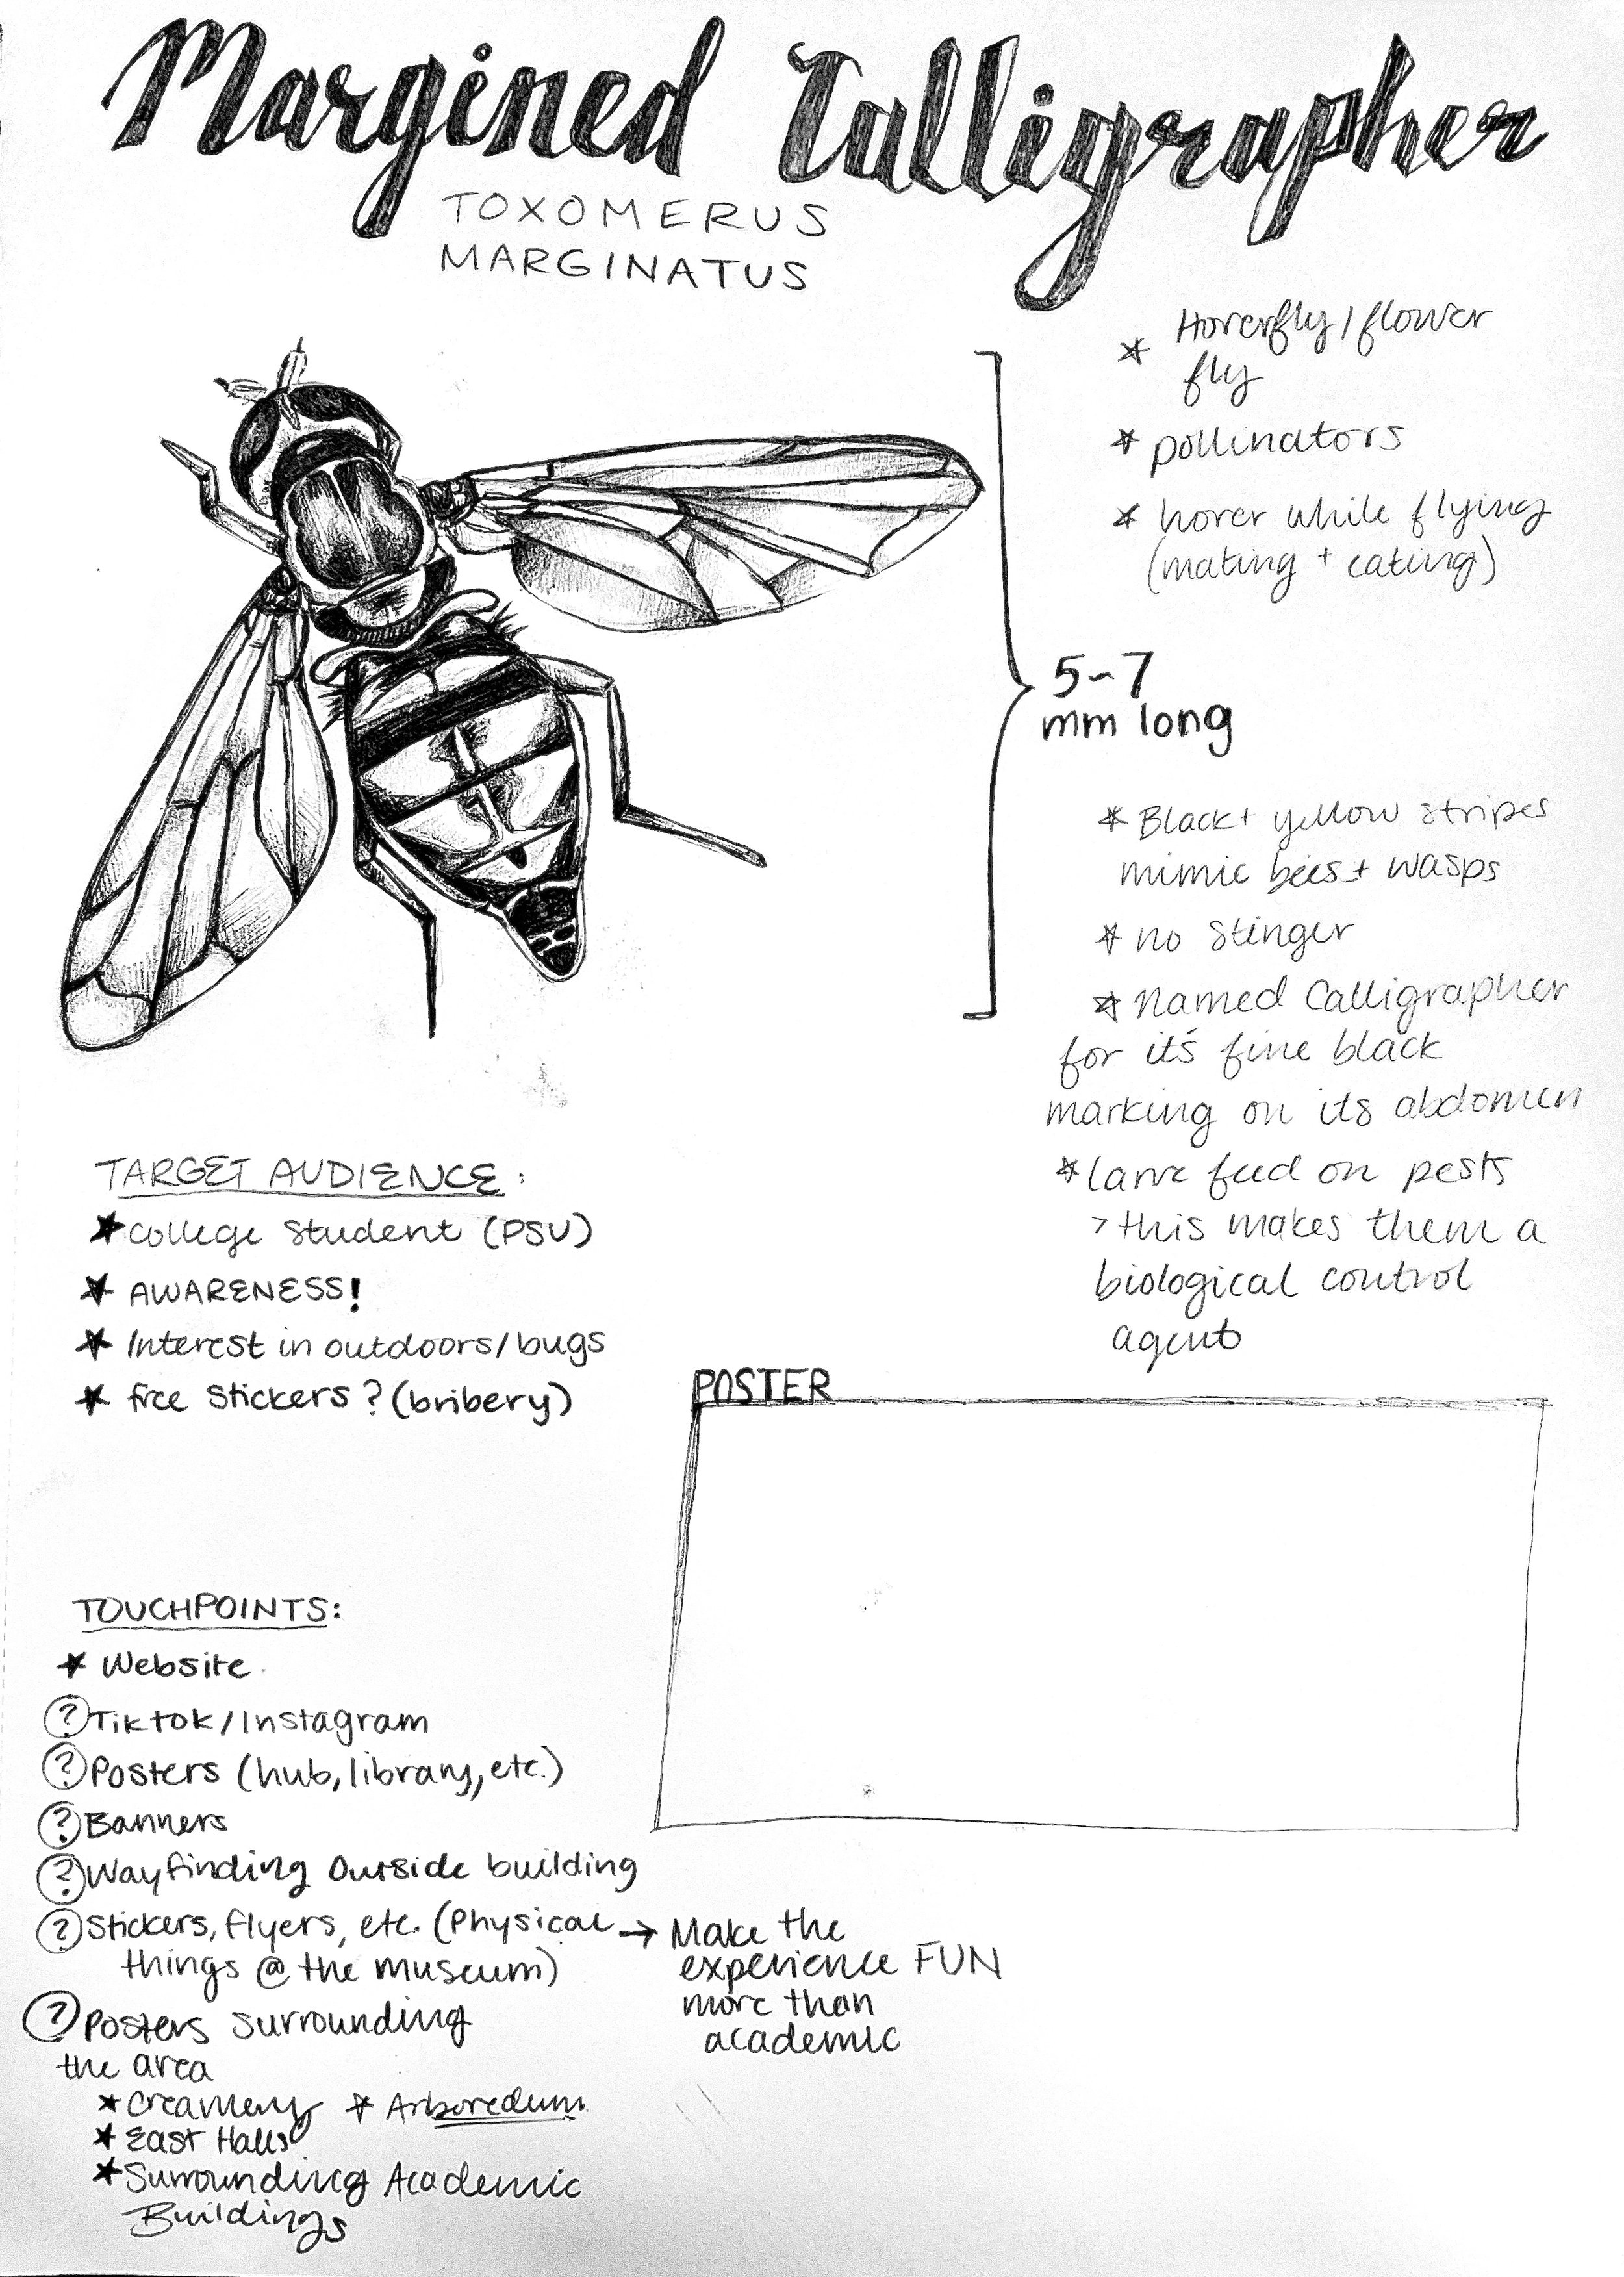 Margined Calligrapher
TOXOMERUS
MARGINATUS
* Hoverfly/flower
fly
* pollinators
* hover while flying
(mating + eating)
5-7
mm long
* Black + yellow stripes
mimic bees + wasps
* no stinger
* Named Calligrapher
for it's fine black
marking on its abdomen
* larve feed on pests
> this makes them a
biological control
agent
TARGET AUDIENCE:
* College Student (PSU)
* AWARENESS!
* Interest in outdoors/bugs
* free stickers? (bribery)
POSTER
TOUCHPOINTS:
* Website
? Tiktok/Instagram
? Posters (hub, library, etc.)
? Banners
? Wayfinding Outside building
? Stickers, flyers, etc. (Physical
things @ the museum)
→ Make the
experience FUN
more than
academic
? Posters surrounding
the area
* Creamery * Arboredum
* East Halls
* Surrounding Academic
Buildings